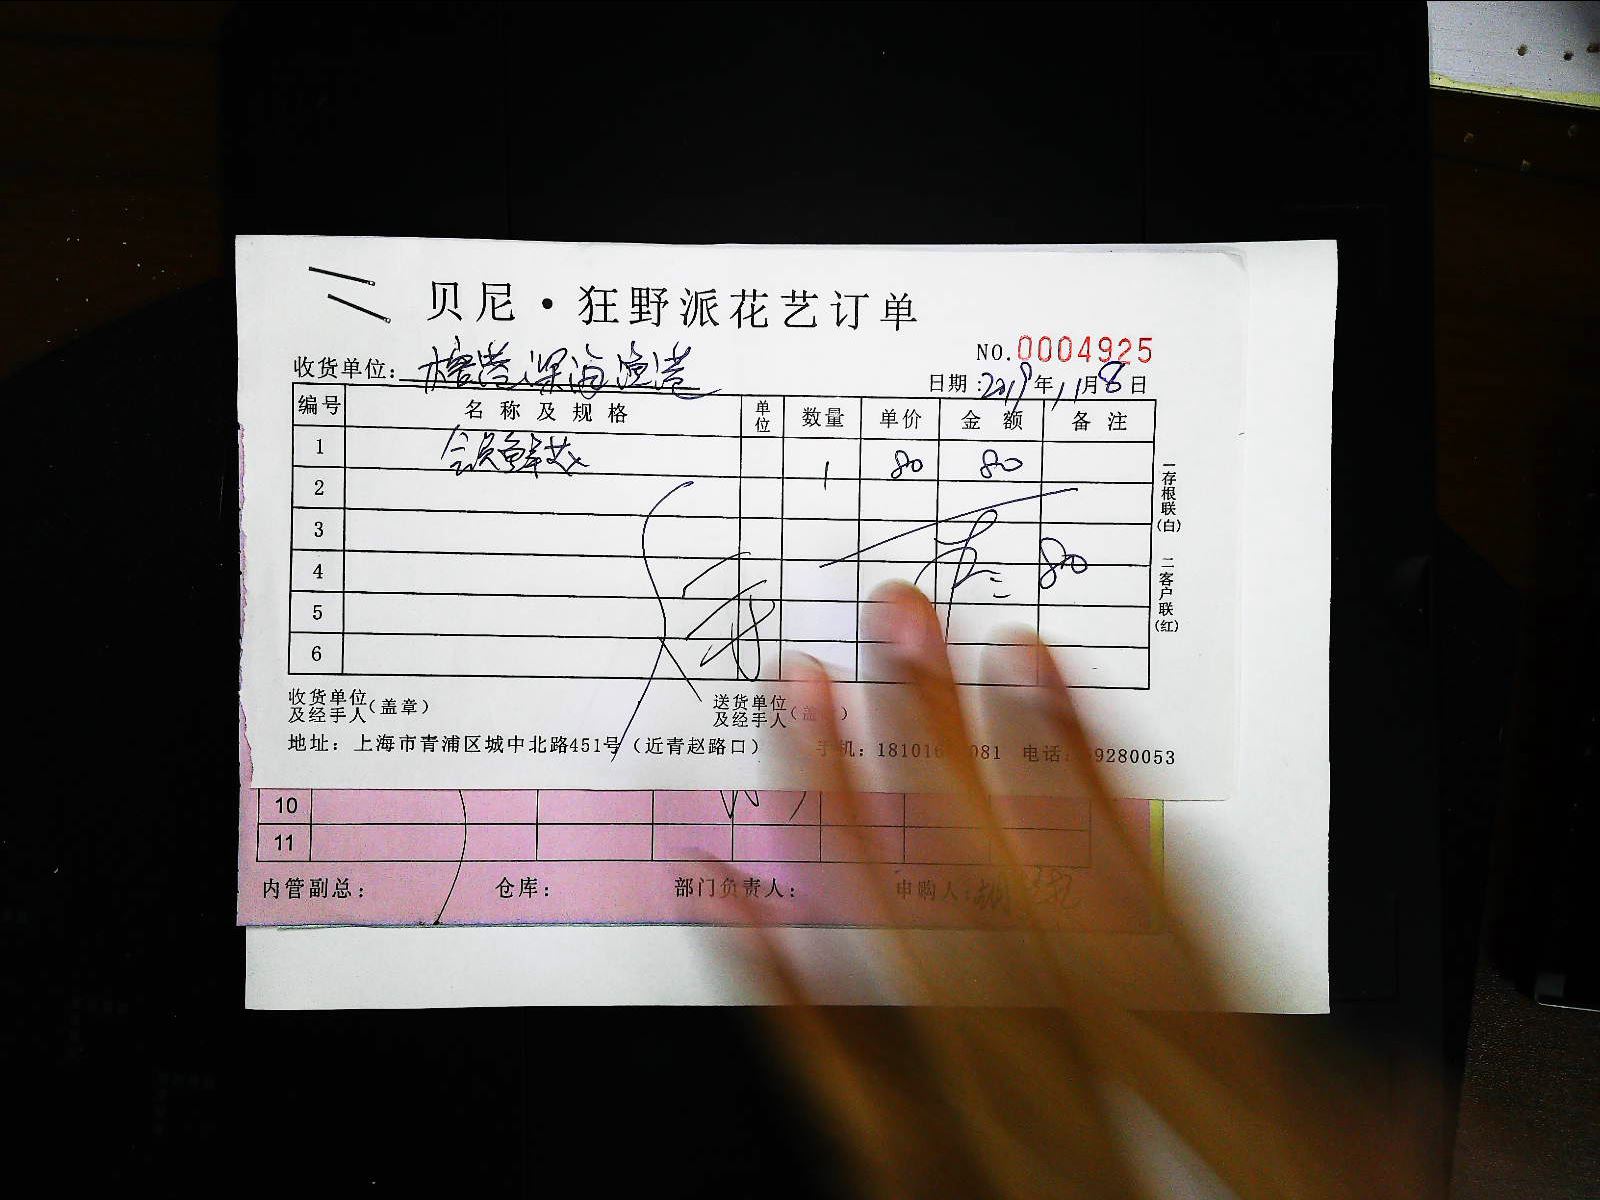 贝尼·狂野派花艺订单
NO.0004925
收货单位: 深海渔港
日期:2019年11月8日
编号 名称及规格 单位 数量 单价 金额 备注
1 会员鲜花 1 80 80
2
3
4 80
5
6
一存根联(白) 二客户联(红)
收货单位及经手人(盖章) 送货单位及经手人
地址: 上海市青浦区城中北路451号(近青赵路口) 手机: 18101 081 电话: 9280053
10
11
内管副总: 仓库: 部门负责人: 申购人: